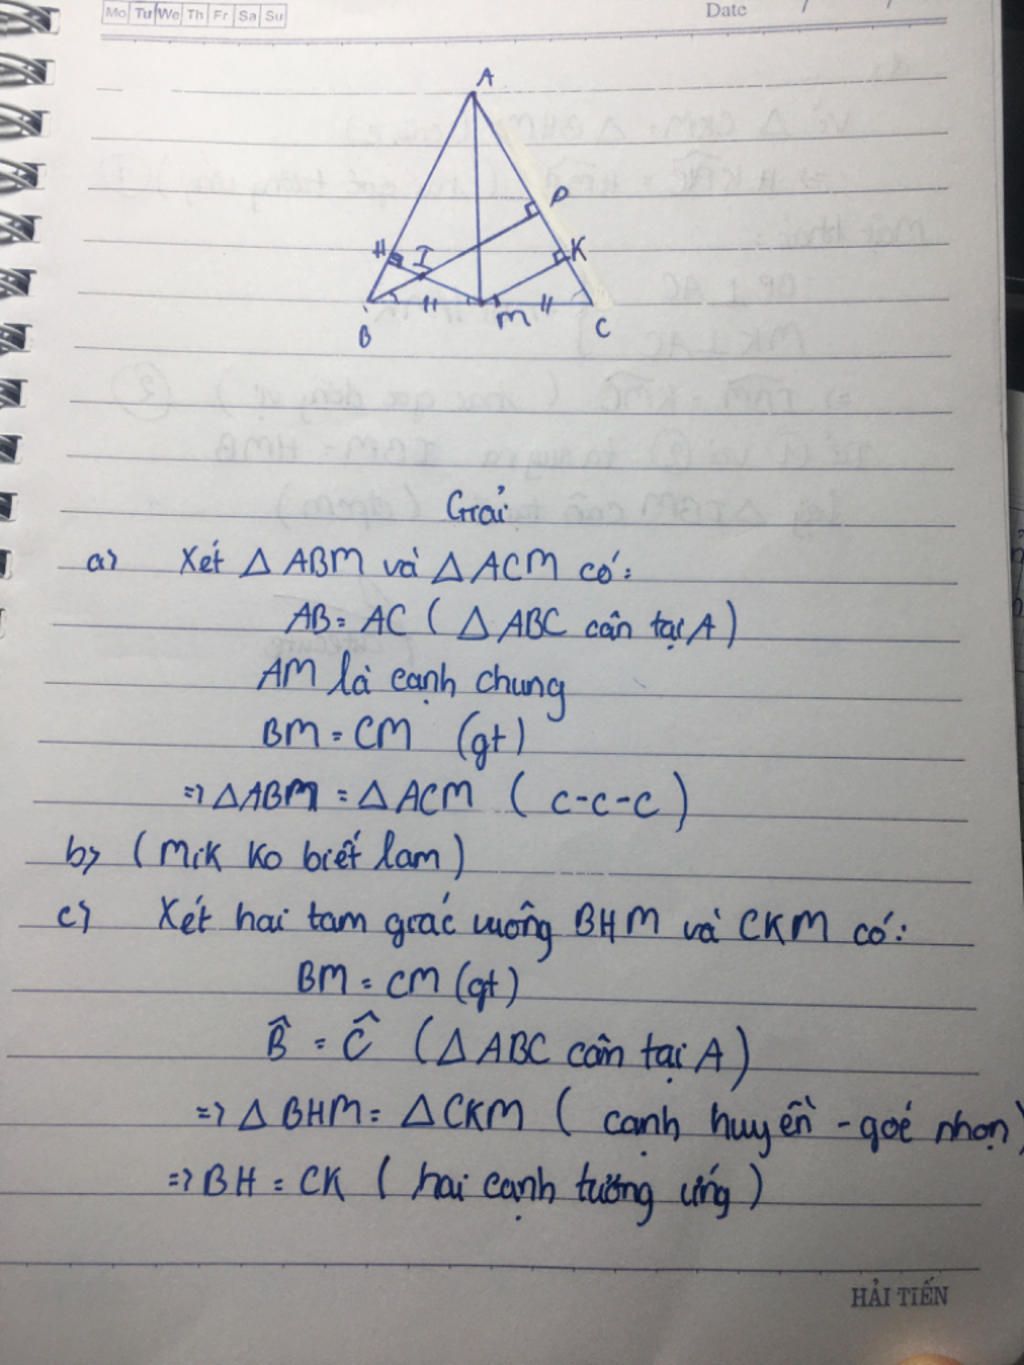 Mo Tu We Th Fr Sa Su
Date / /
A
P
H I K
B M C
Giải
a) Xét Δ ABM và Δ ACM có:
AB = AC ( Δ ABC cân tại A )
AM là cạnh chung
BM = CM (gt)
=> Δ ABM = Δ ACM ( c-c-c )
b) ( Mik ko biết lam )
c) Xét hai tam giác vuông BHM và CKM có:
BM = CM (gt)
B̂ = Ĉ ( Δ ABC cân tại A )
=> Δ BHM = Δ CKM ( cạnh huyền - góc nhọn )
=> BH = CK ( hai cạnh tương ứng )
HẢI TIẾN